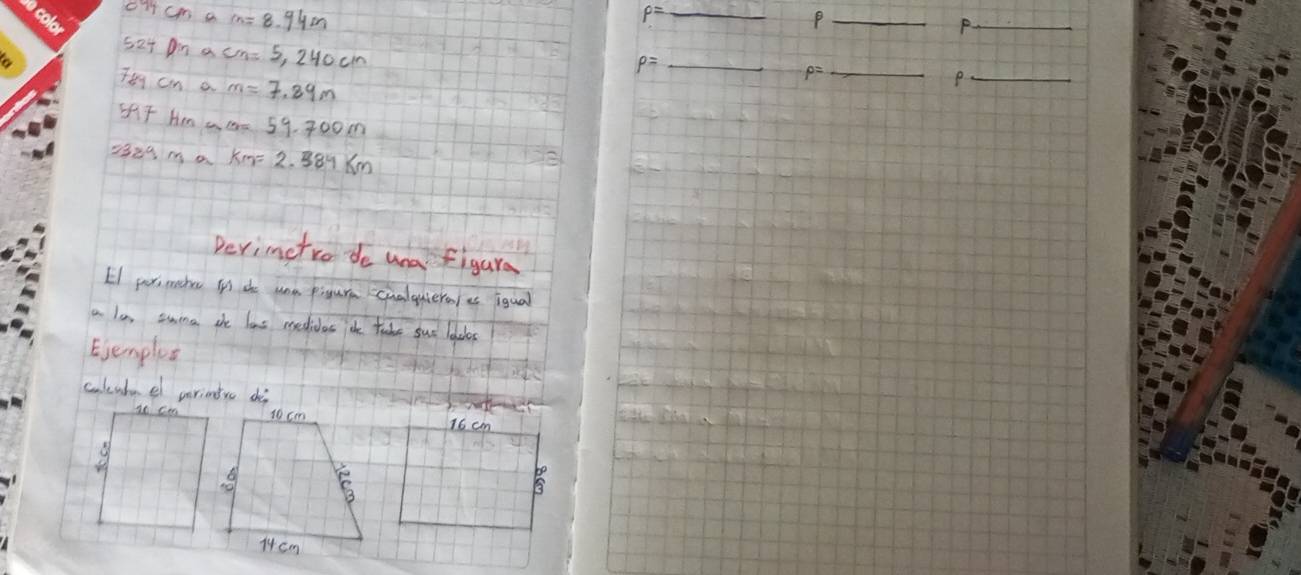 color
ta
894 cm a m= 8.94m
524 Dm a cm= 5,240 cm
789 cm a m= 7.89m
597 Hm a m= 59.700m
m a Km= 2.384 Km
Perimetro de una Figura
El perimetro (p) de una Figura cualquiera es igual
a la suma de las medidas de todos sus lados
Ejemplos
calcula el perimetro de:
10 cm
10 cm
16 cm
12cm
8cm
14 cm
P=________ P ________ P________
P= ________ P= ________ P ________